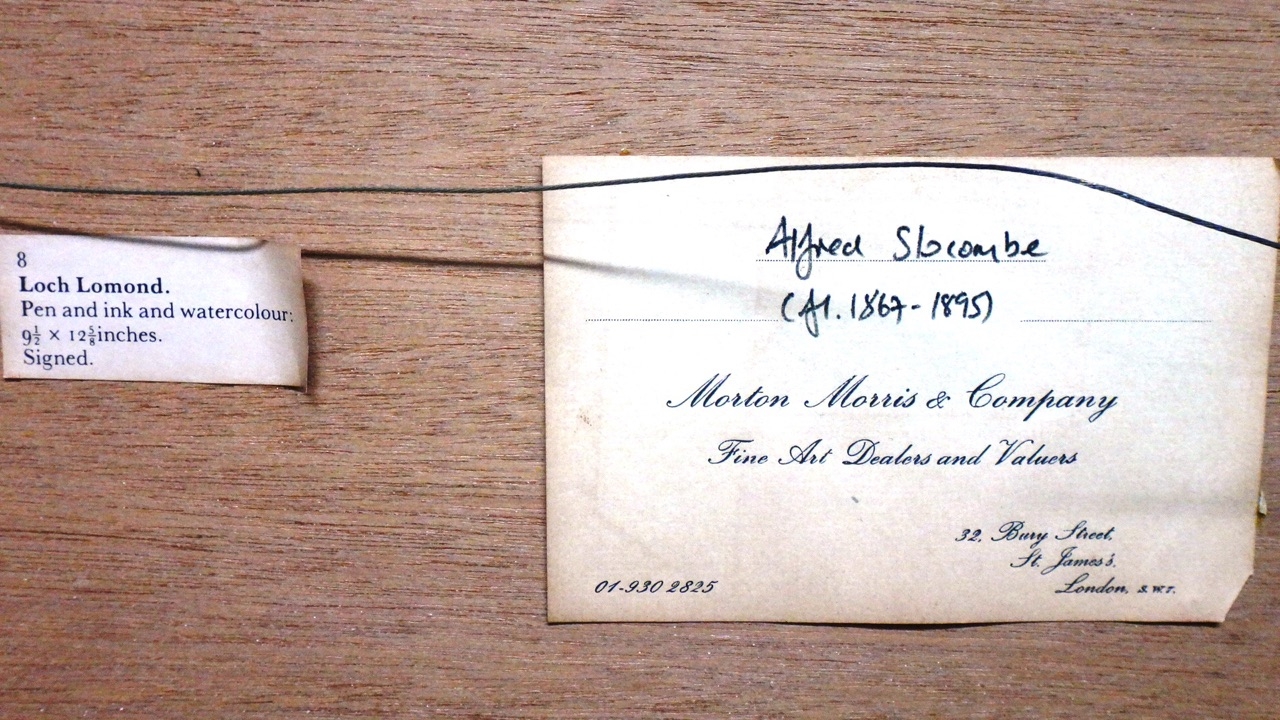 8
Loch Lomond.
Pen and ink and watercolour:
9½ × 12⅝ inches.
Signed.
Alfred Slocombe
(fl. 1867-1895)
Morton Morris & Company
Fine Art Dealers and Valuers
32, Bury Street,
St. James's,
London, S.W.1.
01-930 2825